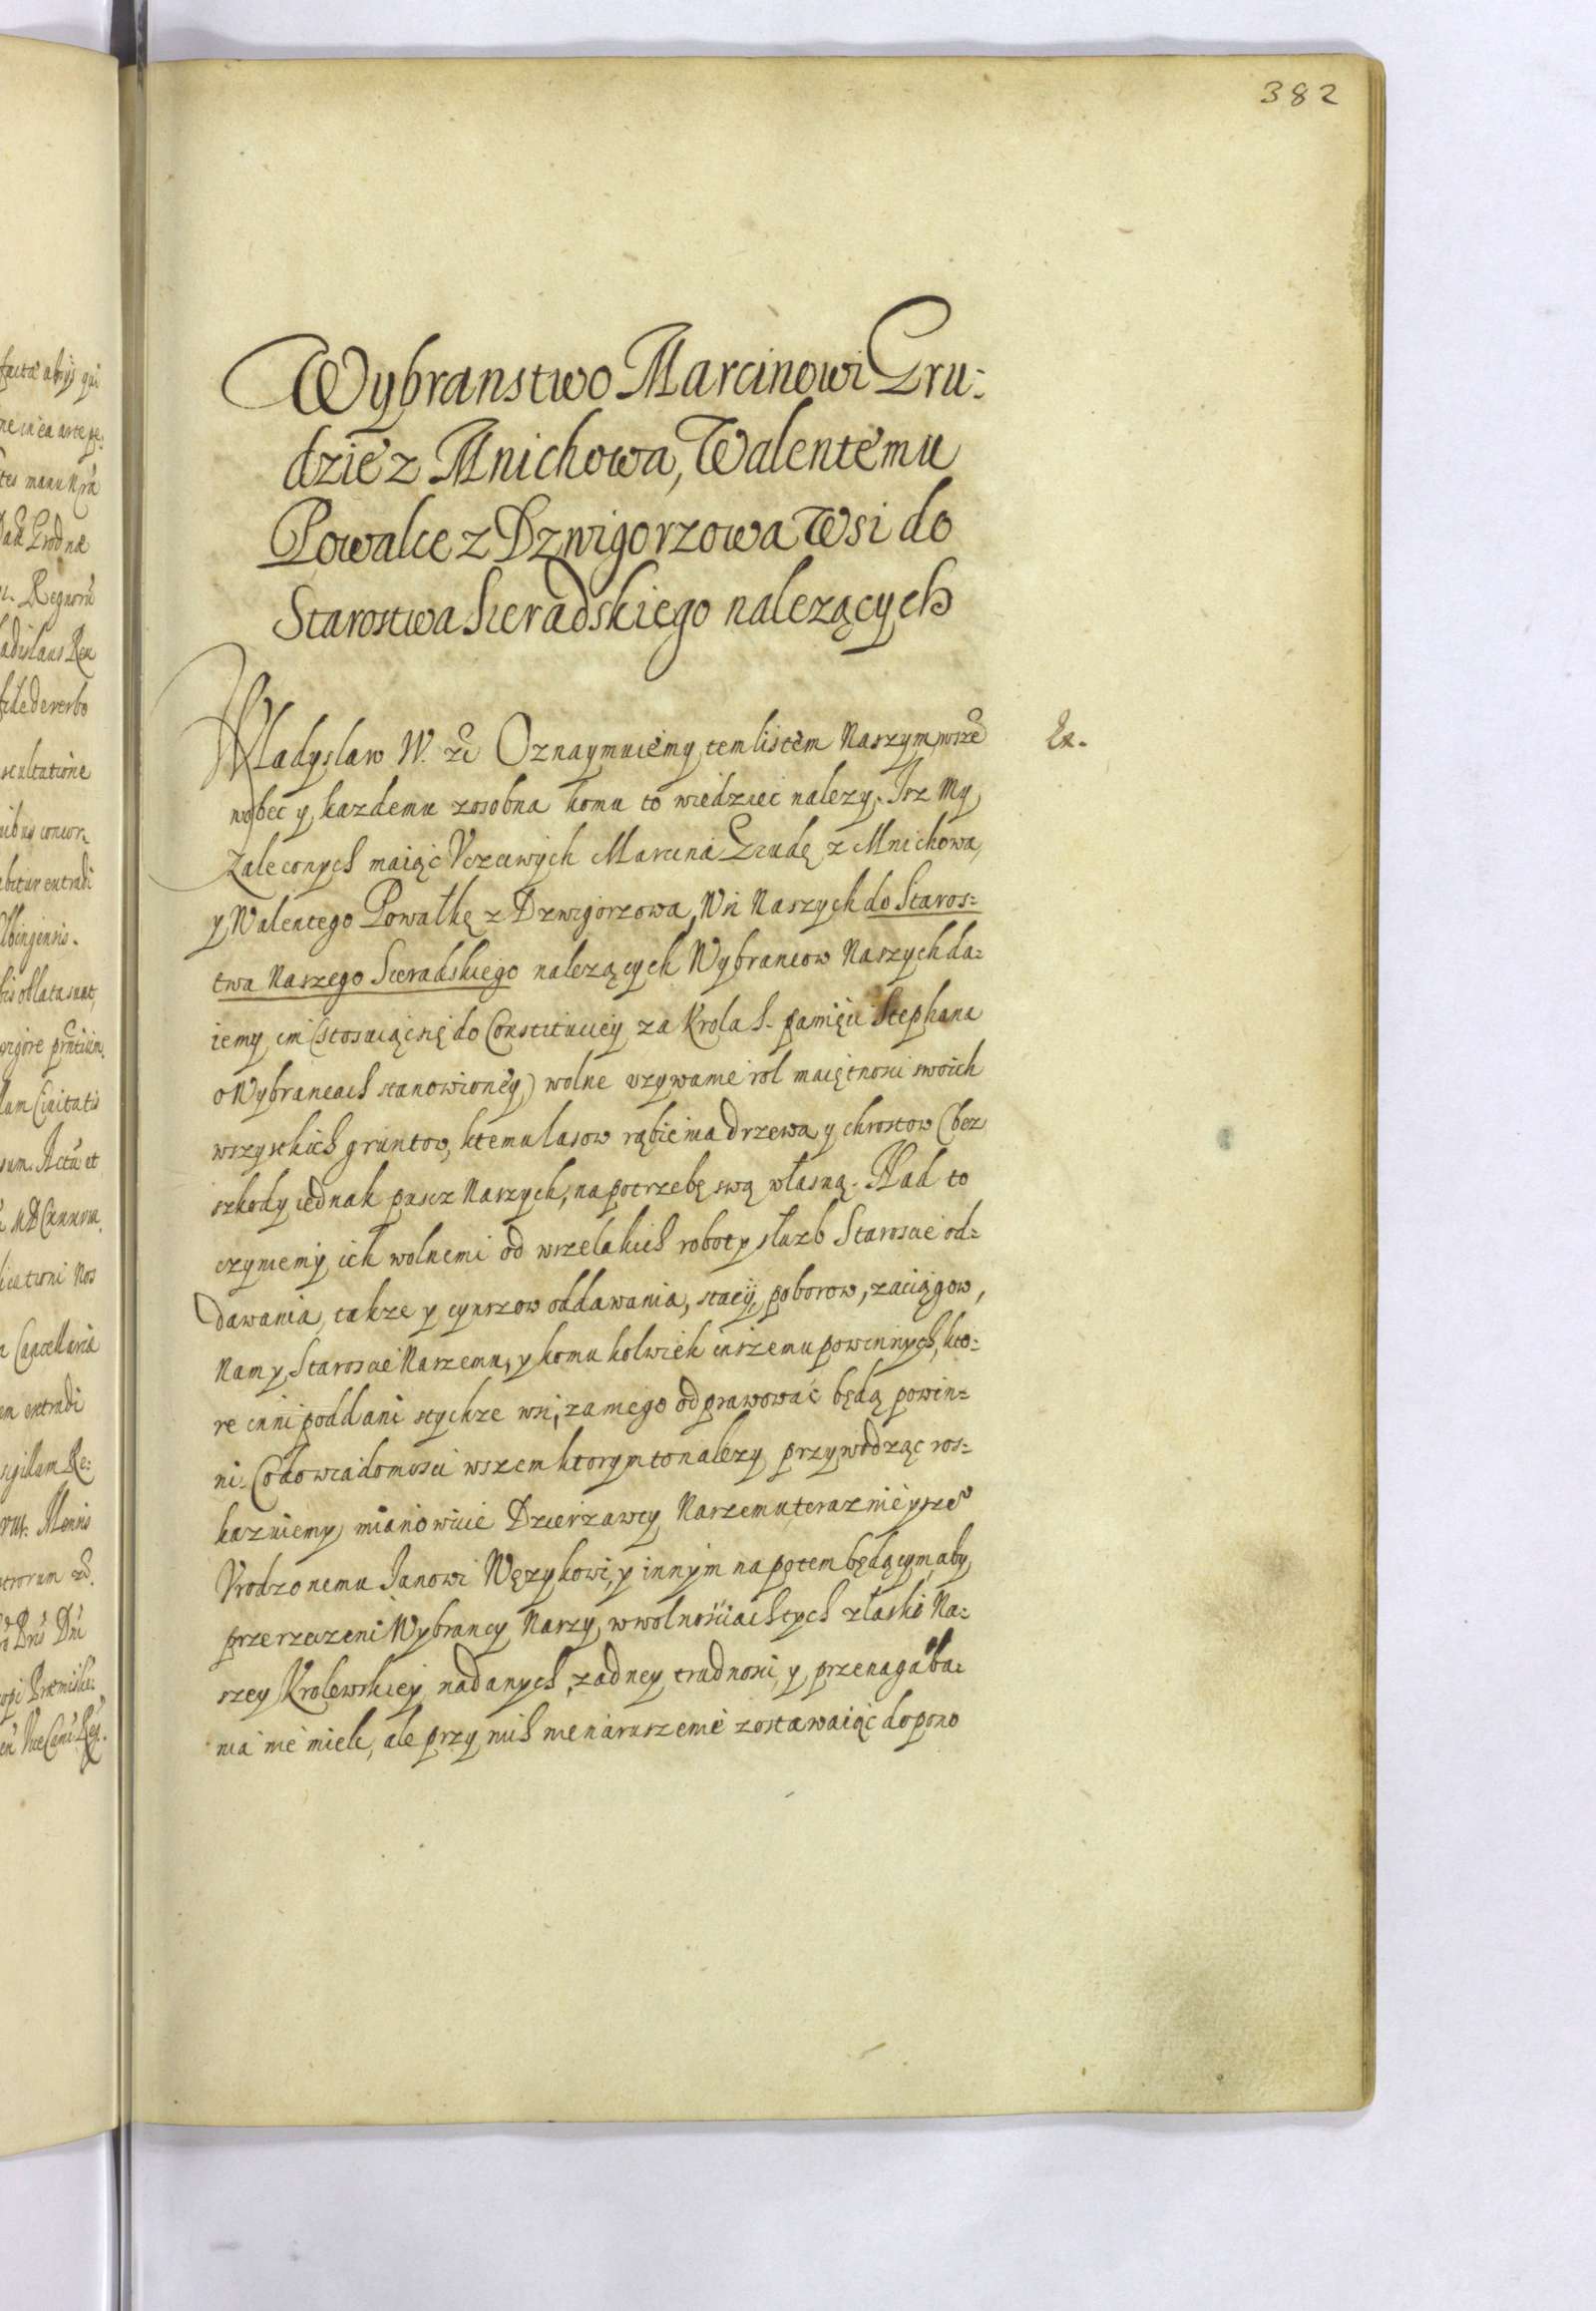 382
Wybranstwo Marcinowi Gru:
dzie z Mnichowa, Walentemu
Powalce z Dzwigorzowa Wsi do
Starostwa Sieradskiego nalezących
Wladyslaw IV. etc Oznaymuiemy tem listem Naszym, wsze
wobec y kazdemu zosobna komu to wiedziec nalezy. Isz My
Zaleconych maiąc Vczciwych Marcina Grudę z Mnichowa,
y Walentego Powałkę z Dzwigorzowa, Wsi Naszych do Staros=
twa Naszego Sieradskiego nalezących Wybrancow Naszych da:
iemy im (stosuiąc się do Constituciey za Krola S. pamięci Stephana
o Wybrancach stanowioney) wolne vzywanie rol maiętnosci swoich
wszystkich gruntow, ktemu lasow rąbienia drzewa y chrostow (bez
szkody iednak puscz Naszych, na potrzebę swą własną. Nad to
czyniemy ich wolnemi od wszelakich robot y służb Staroscie od=
dawania, takze y cynszow oddawania, stacij, poborow, zaciągow,
Nam y Staroscie Naszemu, y komu kolwiek inszemu powinnych, kto=
re inni poddani stychze wsi, zamego odprawować będą powin=
ni. Co do wiadomosci wszem ktorym to nalezy przywodząc ros=
kazuiemy, mianowicie Dzierzawcy Naszemu teraznieysze
Vrodzonemu Janowi Węzykowi, y innym napotem będącym, aby
przerzeczeni Wybrancy Naszy, w wolnościach tych z łaski Na:
szey Krolewskiey nadanych, zadney trudnosci, y przenagaba:
nia nie mieli, ale przy nich nienaruszenie zostawaiąc do pono
Ex.
facta
ne in ea arte pe:
manu Nrã
Grodnæ
Regnorũ
adislaus Rex
de verbo
scultatione
concor=
extradi
lbingensis.
oblata sunt,
lam Ciuitatis
sum. Actũ et
Nos
Cancellaria
extradi
sigillum Re:
Mensis
opi Præmislie: